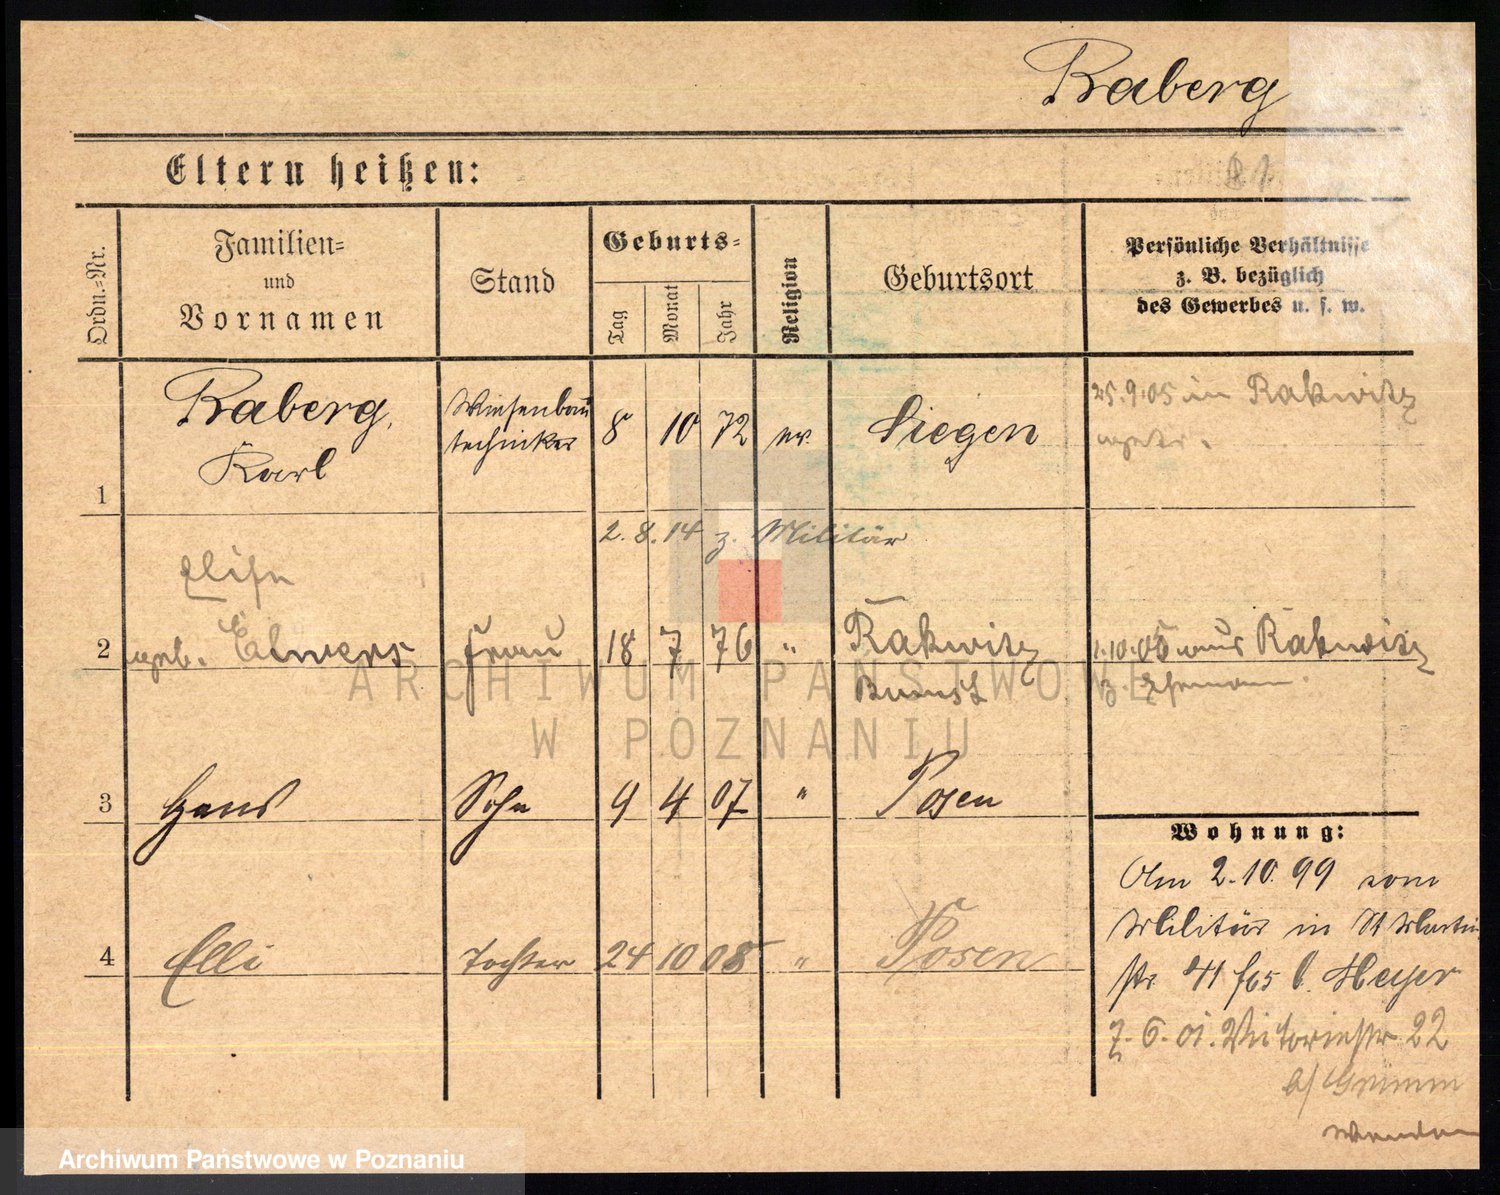 Raberg
Eltern heißen:
Ordn.-Nr.
Familien-
und
Vornamen
Stand
Geburts-
Tag
Monat
Jahr
Religion
Geburtsort
Persönliche Verhältnisse
z. B. bezüglich
des Gewerbes u. s. w.
1
Raberg,
Karl
Wiesenbau
techniker
8 10 72
ev.
Siegen
25.9.05 in Rakwitz
2.8.14 z. Militär
2
Elise
geb. Elwers
Frau
18 7 76
"
Rakwitz
Bomst
1.10.05 aus Rakwitz
z. Ehemann.
3
Hans
Sohn
9 4 07
"
Posen
4
Elli
Tochter
24 10 08
"
Posen
Wohnung:
Am 2.10.99 vom
Militär in St Martin
str 41 b. Meyer
7.6.01. Victoriastr 22
b/ Grimm
Wenden
ARCHIWUM PAŃSTWOWE
W POZNANIU
Archiwum Państwowe w Poznaniu